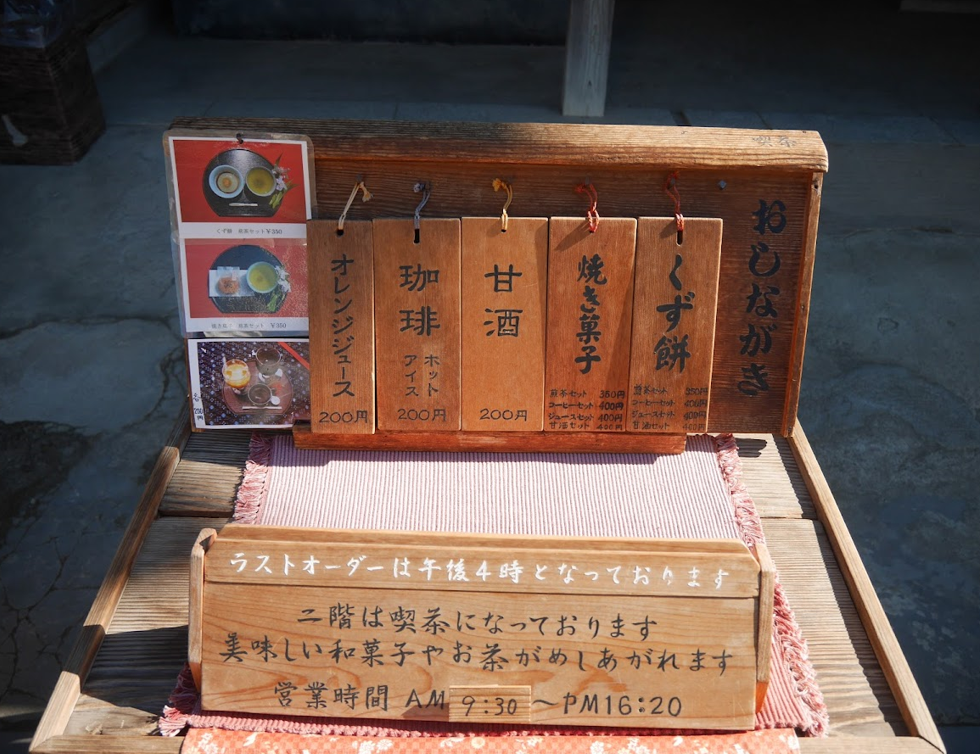 おしながき
くず餅
煎茶セット 350円
コーヒーセット 400円
ジュースセット 400円
甘酒セット 400円
焼き菓子
煎茶セット 350円
コーヒーセット 400円
ジュースセット 400円
甘酒セット 400円
甘酒
200円
珈琲
ホット
アイス
200円
オレンジジュース
200円
¥350
250円
ラストオーダーは午後4時となっております
二階は喫茶になっております
美味しい和菓子やお茶がめしあがれます
営業時間 AM 9:30 〜PM16:20